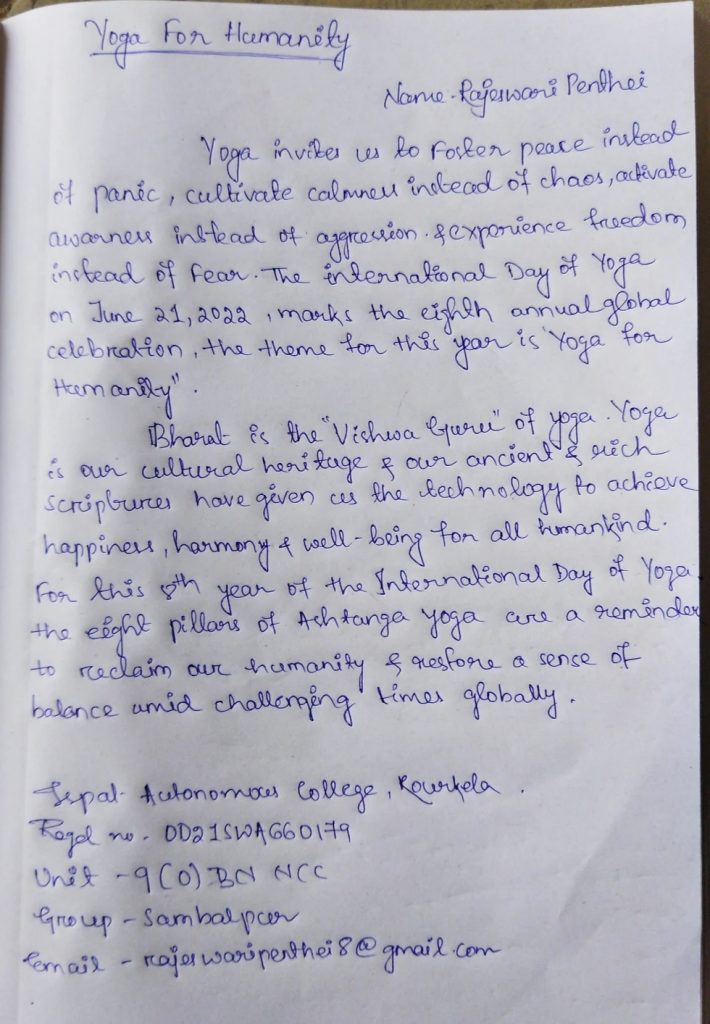 Yoga For Humanity
Name - Rajeswari Penthei
Yoga invites us to foster peace instead
of panic, cultivate calmness instead of chaos, activate
awarness instead of aggression & experience freedom
instead of fear. The international Day of Yoga
on June 21, 2022, marks the eighth annual global
celebration, the theme for this year is "Yoga for
Humanity".
Bharat is the "Vishwa Guru" of yoga. Yoga
is our cultural heritage & our ancient & rich
scriptures have given us the technology to achieve
happiness, harmony & well-being for all humankind.
For this 8th year of the International Day of Yoga
the eight pillars of Ashtanga yoga are a reminder
to reclaim our humanity & restore a sense of
balance amid challenging times globally.
Ispat Autonomous College, Rourkela.
Regd no. - OD21SWA660179
Unit - 9(O) BN NCC
Group - Sambalpur
Email - rajeswaripenthei8@gmail.com